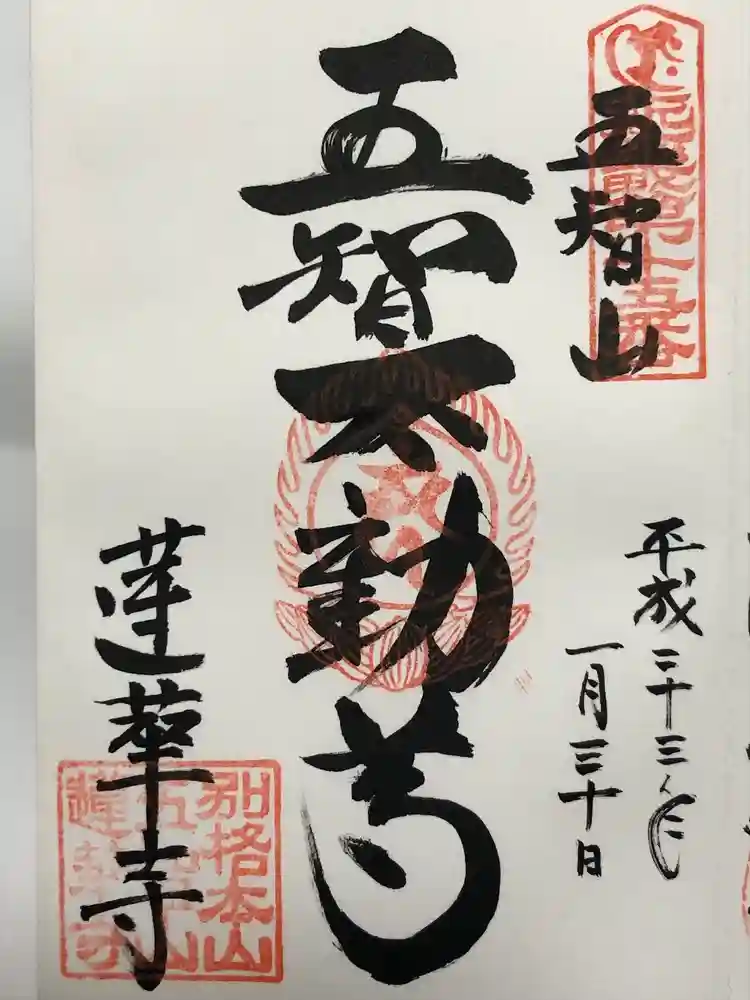 五智山
平成三十三年
一月三十日
五智不動尊
蓮華寺
別格本山
五智山
蓮華寺